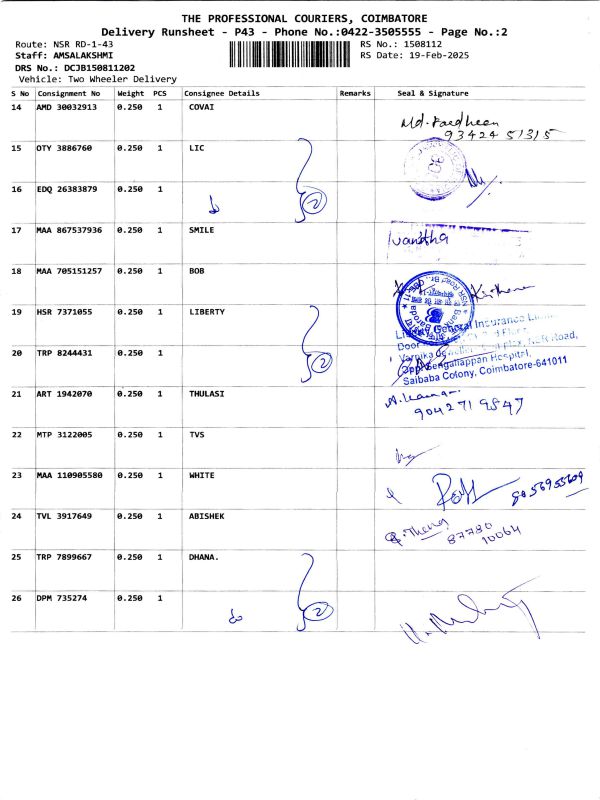 THE PROFESSIONAL COURIERS, COIMBATORE
Delivery Runsheet - P43 - Phone No.:0422-3505555 - Page No.:2
Route: NSR RD-1-43
RS No.: 1508112
Staff: AMSALAKSHMI
RS Date: 19-Feb-2025
DRS No.: DCJB150811202
Vehicle: Two Wheeler Delivery
S No Consignment No Weight PCS Consignee Details Remarks Seal & Signature
14 AMD 30032913 0.250 1 COVAI
93424 51315
15 OTY 3886760 0.250 1 LIC
2
16 EDQ 26383879 0.250 1
17 MAA 867537936 0.250 1 SMILE
Ivanitha
18 MAA 705151257 0.250 1 BOB
19 HSR 7371055 0.250 1 LIBERTY
General Insurance
20 TRP 8244431 0.250 1
2
Door
Road,
Opp. Sengaliappan Hospital,
Saibaba Colony, Coimbatore-641011
21 ART 1942070 0.250 1 THULASI
9042719547
22 MTP 3122005 0.250 1 TVS
23 MAA 110905580 0.250 1 WHITE
24 TVL 3917649 0.250 1 ABISHEK
87780
10064
25 TRP 7899667 0.250 1 DHANA.
26 DPM 735274 0.250 1
2